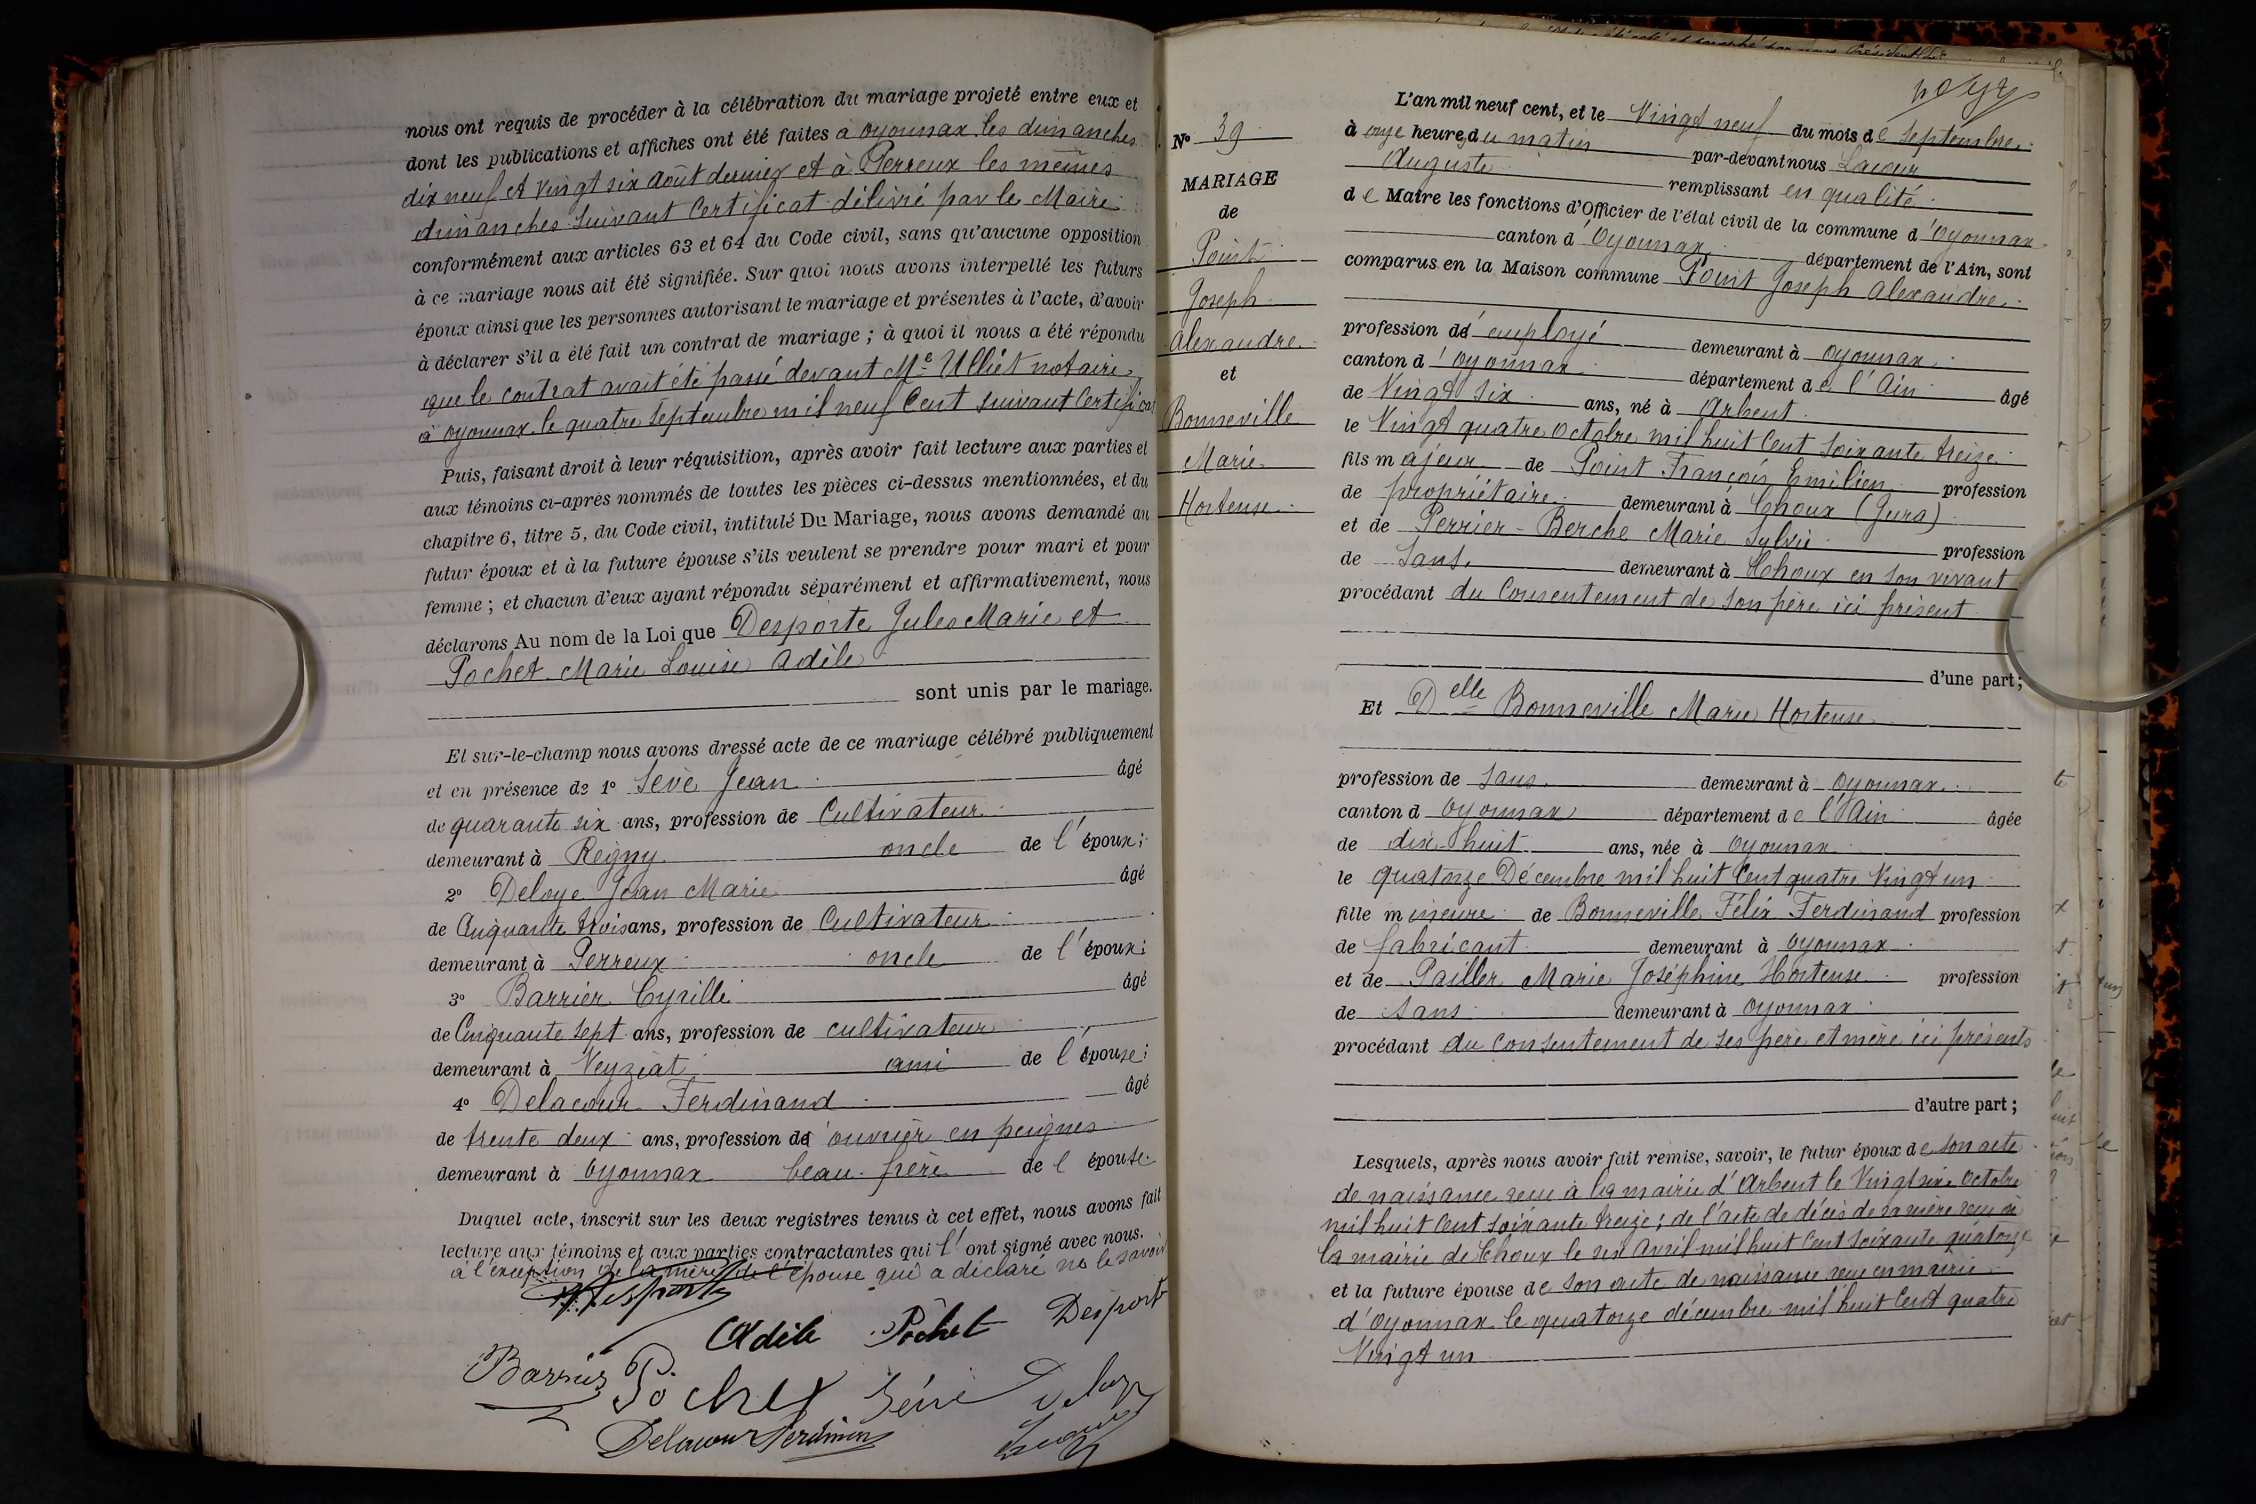 nous ont requis de procéder à la célébration du mariage projeté entre eux et
dont les publications et affiches ont été faites à Oyonnax les dimanches
dix neuf et Vingt six août dernier et à Perreux les mêmes
dimanches suivant Certificat délivré par le Maire
conformément aux articles 63 et 64 du Code civil, sans qu'aucune opposition
à ce mariage nous ait été signifiée. Sur quoi nous avons interpellé les futurs
époux ainsi que les personnes autorisant le mariage et présentes à l'acte, d'avoir
à déclarer s'il a été fait un contrat de mariage ; à quoi il nous a été répondu
que le contrat avait été passé devant Me Ulliet notaire
à Oyonnax le quatre septembre mil neuf Cent suivant Certificat
Puis, faisant droit à leur réquisition, après avoir fait lecture aux parties et
aux témoins ci-après nommés de toutes les pièces ci-dessus mentionnées, et du
chapitre 6, titre 5, du Code civil, intitulé Du Mariage, nous avons demandé au
futur époux et à la future épouse s'ils veulent se prendre pour mari et pour
femme ; et chacun d'eux ayant répondu séparément et affirmativement, nous
déclarons Au nom de la Loi que Desporte Jules Marie et
Pochet Marie Louise Adèle
sont unis par le mariage.
Et sur-le-champ nous avons dressé acte de ce mariage célébré publiquement
et en présence de 1° Sève Jean âgé
de quarante six ans, profession de Cultivateur
demeurant à Régny oncle de l'époux ;
2° Deloye Jean Marie âgé
de Cinquante trois ans, profession de Cultivateur
demeurant à Perreux oncle de l'époux ;
3° Barrier Cyrille âgé
de Cinquante sept ans, profession de cultivateur
demeurant à Veyziat ami de l'épouse ;
4° Delacour Ferdinand âgé
de trente deux ans, profession d'ouvrier en peignes
demeurant à Oyonnax beau-frère de l'épouse.
Duquel acte, inscrit sur les deux registres tenus à cet effet, nous avons fait
lecture aux témoins et aux parties contractantes qui l'ont signé avec nous.
à l'exception de la mère de l'épouse qui a déclaré ne le savoir
Desporte
Adèle Pochet Desport
Barrier Pochet Sève Deloye
Delacour Ferdinand Lacour
N° 39
MARIAGE
de
Point
Joseph
Alexandre
et
Bonneville
Marie
Hortense
L'an mil neuf cent, et le Vingt neuf du mois de septembre
à onze heures du matin par-devant nous Lacour
Auguste remplissant en qualité
de Maire les fonctions d'Officier de l'état civil de la commune d'Oyonnax
canton d'Oyonnax département de l'Ain, sont
comparus en la Maison commune Point Joseph Alexandre
profession d'employé demeurant à Oyonnax
canton d'Oyonnax département de l'Ain âgé
de Vingt six ans, né à Arbent
le Vingt quatre Octobre mil huit Cent soixante treize
fils majeur de Point François Emilien profession
de propriétaire demeurant à Choux (Jura)
et de Perrier-Berche Marie Sylvie profession
de Sans demeurant à Choux en son vivant
procédant du Consentement de son père ici présent
d'une part ;
Et Delle Bonneville Marie Hortense
profession de Sans demeurant à Oyonnax
canton d Oyonnax département de l'Ain âgée
de dix-huit ans, née à Oyonnax
le quatorze Décembre mil huit Cent quatre Vingt un
fille mineure de Bonneville Félix Ferdinand profession
de fabricant demeurant à Oyonnax
et de Pailler Marie Joséphine Hortense profession
de Sans demeurant à Oyonnax
procédant du Consentement de ses père et mère ici présents
d'autre part ;
Lesquels, après nous avoir fait remise, savoir, le futur époux de son acte
de naissance reçu à la mairie d'Arbent le Vingt six Octobre
mil huit Cent soixante treize ; de l'acte de décès de sa mère reçu à
la mairie de Choux le six Avril mil huit Cent soixante quatorze
et la future épouse de son acte de naissance reçu en mairie
d'Oyonnax le quatorze décembre mil huit Cent quatre
Vingt un